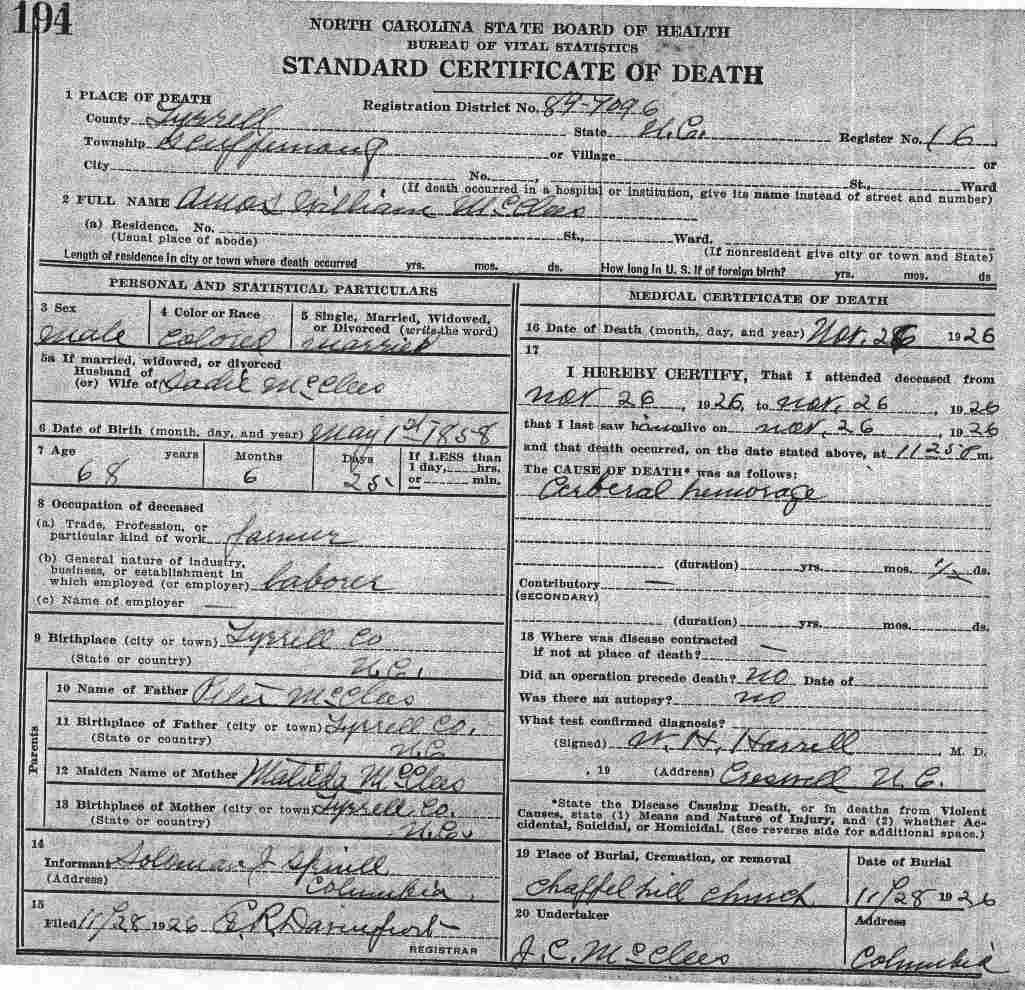 194
NORTH CAROLINA STATE BOARD OF HEALTH
BUREAU OF VITAL STATISTICS
STANDARD CERTIFICATE OF DEATH
1 PLACE OF DEATH
Registration District No. 89-7096
County Tyrrell State N.C. Register No. 16
Township Scuppernong or Village or
City No. St., Ward
(If death occurred in a hospital or institution, give its name instead of street and number)
2 FULL NAME Amos William McClees
(a) Residence. No. St., Ward.
(Usual place of abode) (If nonresident give city or town and State)
Length of residence in city or town where death occurred yrs. mos. ds. How long in U. S. if of foreign birth? yrs. mos. ds
PERSONAL AND STATISTICAL PARTICULARS
3 Sex
male
4 Color or Race
Colored
5 Single, Married, Widowed,
or Divorced (write the word)
married
5a If married, widowed, or divorced
Husband of
(or) Wife of Sadie McClees
6 Date of Birth (month, day, and year) May 1st 1858
7 Age years Months Days
68 6 25
If LESS than
1 day, hrs.
or min.
8 Occupation of deceased
(a) Trade, Profession, or
particular kind of work farmer
(b) General nature of industry,
business, or establishment in
which employed (or employer) laborer
(c) Name of employer —
9 Birthplace (city or town) Tyrrell Co
(State or country) N.C.
Parents
10 Name of Father McClees
11 Birthplace of Father (city or town) Tyrrell Co.
(State or country) N.C.
12 Maiden Name of Mother Matilda McClees
13 Birthplace of Mother (city or town) Tyrrell Co.
(State or country) N.C.
14
Informant Soloman J Spruill
(Address) Columbia
15
Filed 11/28 1926 C.R. Davenport
REGISTRAR
MEDICAL CERTIFICATE OF DEATH
16 Date of Death (month, day, and year) Nov. 26 1926
17
I HEREBY CERTIFY, That I attended deceased from
Nov 26, 1926, to Nov. 26, 1926
that I last saw him alive on Nov. 26, 1926
and that death occurred, on the date stated above, at 1125 m.
The CAUSE OF DEATH* was as follows:
Cerberal hemorage
(duration) yrs. mos. 1/2 ds.
Contributory —
(SECONDARY)
(duration) yrs. mos. ds.
18 Where was disease contracted
if not at place of death? —
Did an operation precede death? no Date of
Was there an autopsy? no
What test confirmed diagnosis?
(Signed) W. H. Harrell, M. D.
, 19 (Address) Creswell N.C.
*State the Disease Causing Death, or in deaths from Violent
Causes, state (1) Means and Nature of Injury, and (2) whether Ac-
cidental, Suicidal, or Homicidal. (See reverse side for additional space.)
19 Place of Burial, Cremation, or removal
Chappel hill church
Date of Burial
11/28 1926
20 Undertaker
J. C. McClees
Address
Columbia